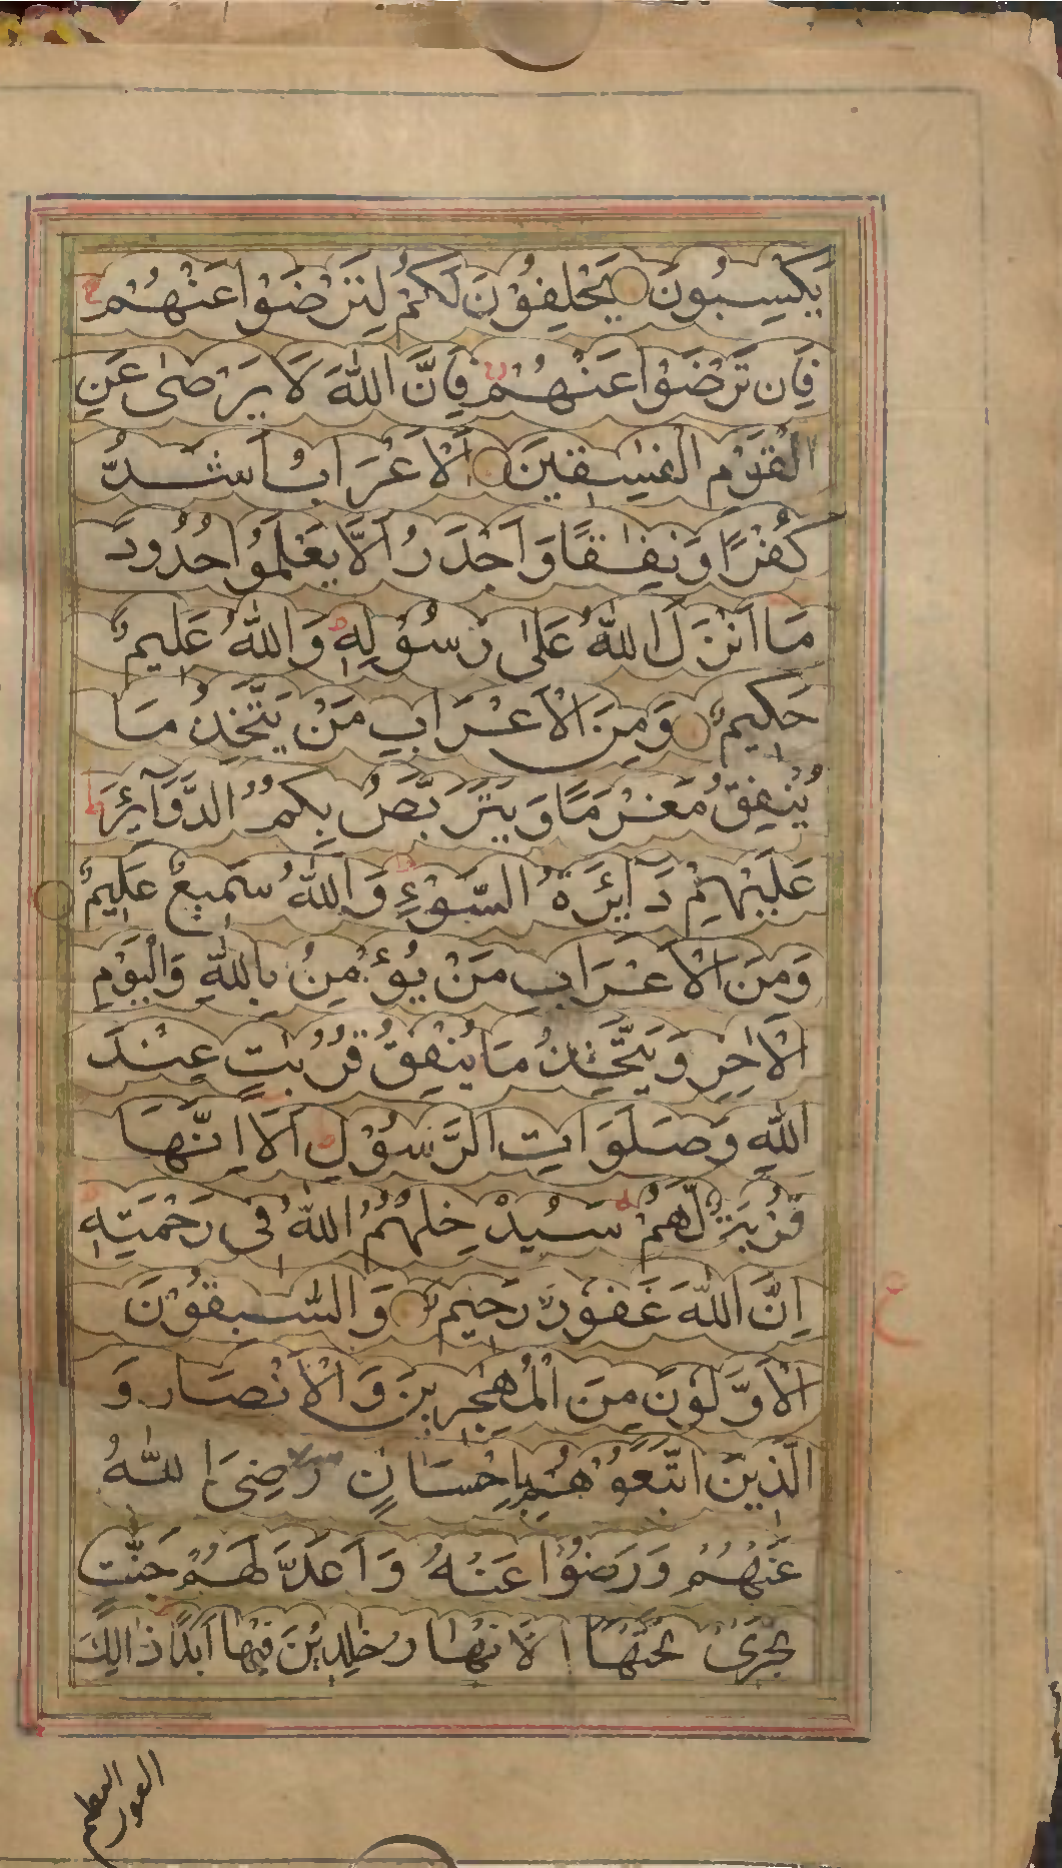 يَكْسِبُونَ يَحْلِفُوْنَ لَكُمْ لِتَرْضَوْا عَنْهُمْ
فَاِن تَرْضَوْا عَنْهُمْ فَاِنَّ اللّٰهَ لَا يَرْضٰى عَنِ
الْقَوْمِ الْفٰسِقِينَ اَلْاَعْرَابُ اَشَدُّ
كُفْرًا وَنِفَاقًا وَاَجْدَرُ اَلَّا يَعْلَمُوا حُدُودَ
مَا اَنْزَلَ اللّٰهُ عَلٰى رَسُوْلِهٖ وَاللّٰهُ عَلِيمٌ
حَكِيمٌ وَمِنَ الْاَعْرَابِ مَنْ يَتَّخِذُ مَا
يُنْفِقُ مَغْرَمًا وَيَتَرَبَّصُ بِكُمُ الدَّوَآئِرَ
عَلَيْهِمْ دَآئِرَةُ السَّوْءِ وَاللّٰهُ سَمِيعٌ عَلِيمٌ
وَمِنَ الْاَعْرَابِ مَنْ يُؤْمِنُ بِاللّٰهِ وَالْيَوْمِ
الْاٰخِرِ وَيَتَّخِذُ مَا يُنْفِقُ قُرُبٰتٍ عِنْدَ
اللّٰهِ وَصَلَوَاتِ الرَّسُوْلِ اَلَا اِنَّهَا
قُرْبَةٌ لَّهُمْ سَيُدْخِلُهُمُ اللّٰهُ فِى رَحْمَتِهٖ
اِنَّ اللّٰهَ غَفُوْرٌ رَحِيمٌ وَالسّٰبِقُوْنَ
الْاَوَّلُوْنَ مِنَ الْمُهٰجِرِينَ وَالْاَنْصَارِ وَ
الَّذِينَ اتَّبَعُوْهُمْ بِاِحْسَانٍ رَضِىَ اللّٰهُ
عَنْهُمْ وَرَضُوْا عَنْهُ وَاَعَدَّ لَهُمْ جَنّٰتٍ
تَجْرِىْ تَحْتَهَا الْاَنْهَارُ خٰلِدِيْنَ فِيْهَا اَبَدًا ذَالِكَ
الفوز العظيم